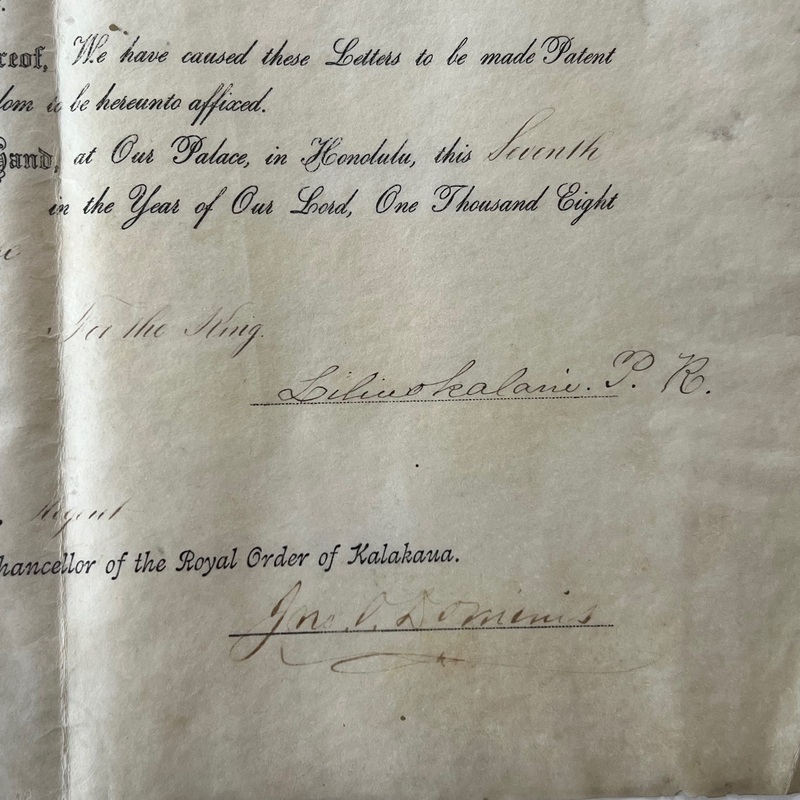 reof, We have caused these Letters to be made Patent
dom to be hereunto affixed.
Hand, at Our Palace, in Honolulu, this Seventh
in the Year of Our Lord, One Thousand Eight
For the King.
Liliuokalani. P. R.
Regent
hancellor of the Royal Order of Kalakaua.
Jno. O. Dominis